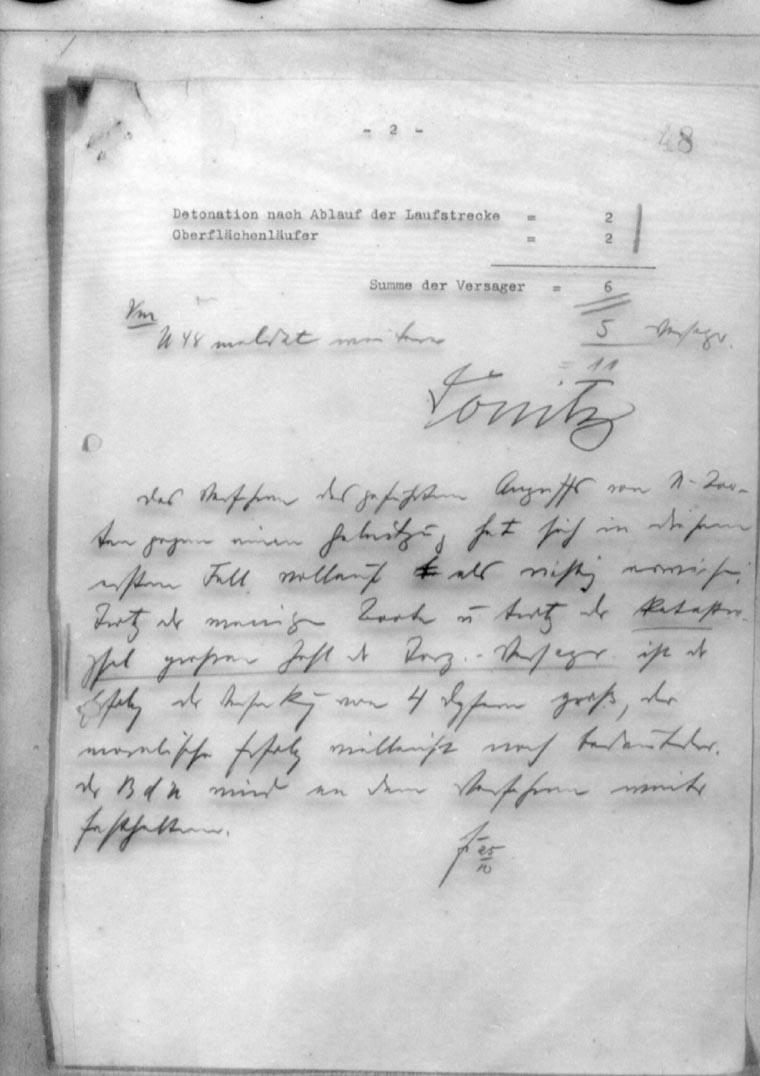 - 2 -
48
Detonation nach Ablauf der Laufstrecke = 2
Oberflächenläufer = 2
Summe der Versager = 6
U 48 meldet weitere 5 Versager.
= 11
Dönitz
Das Verfahren des geführten Angriffs von U-Boo-
ten gegen einen Geleitzug hat sich in diesem
ersten Fall vollauf als richtig erwiesen.
Trotz der wenigen Boote u trotz der Katastro-
phal großen Zahl der Torp.-Versager ist der
Erfolg der Versenkung von 4 Dpfern groß, der
moralische Erfolg vielleicht noch bedeutender.
Der B d U wird an dem Verfahren weiter
festhalten.
25
10